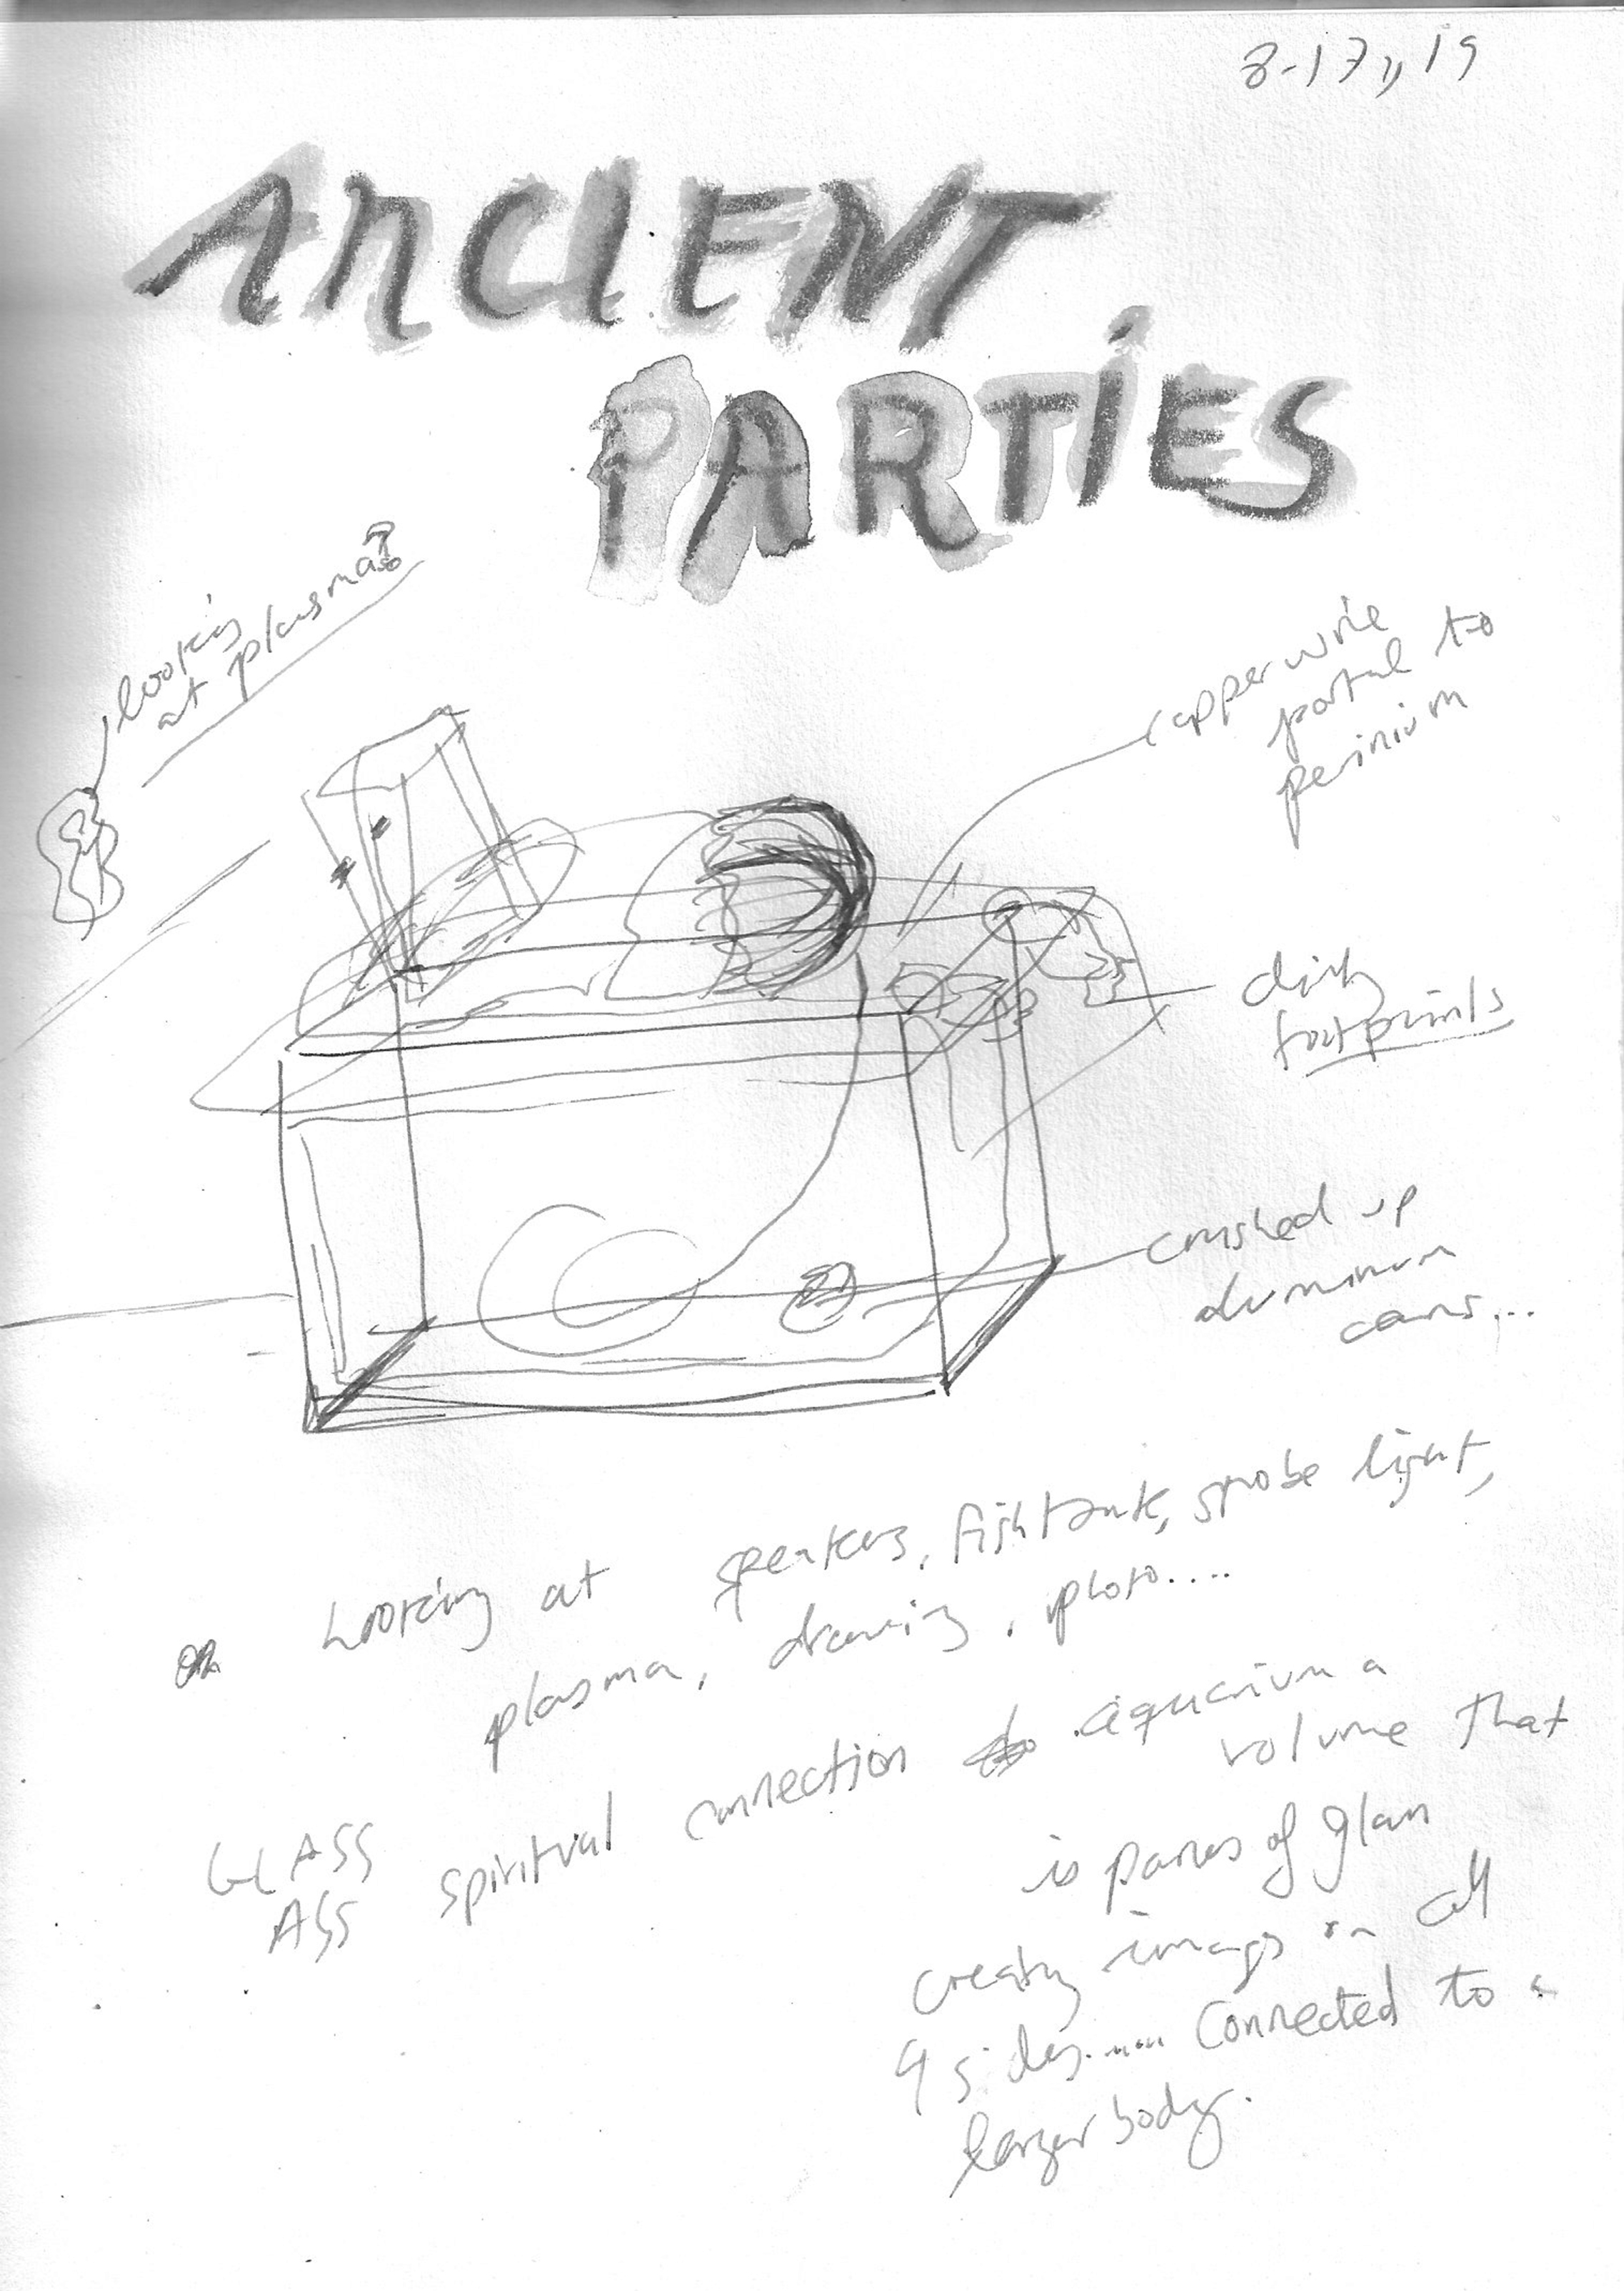 8-17,,19
ANCIENT
PARTIES
looking
at plasma?
copper wire
portal to
perinium
dirty
footprints
crushed up
aluminum
cans...
or Looking at speakers, fishtank, strobe light,
plasma, drawing, photo....
GLASS
ASS spiritual connection aquarium a
volume that
is panes of glass
creating images on all
4 sides..... Connected to a
larger body.